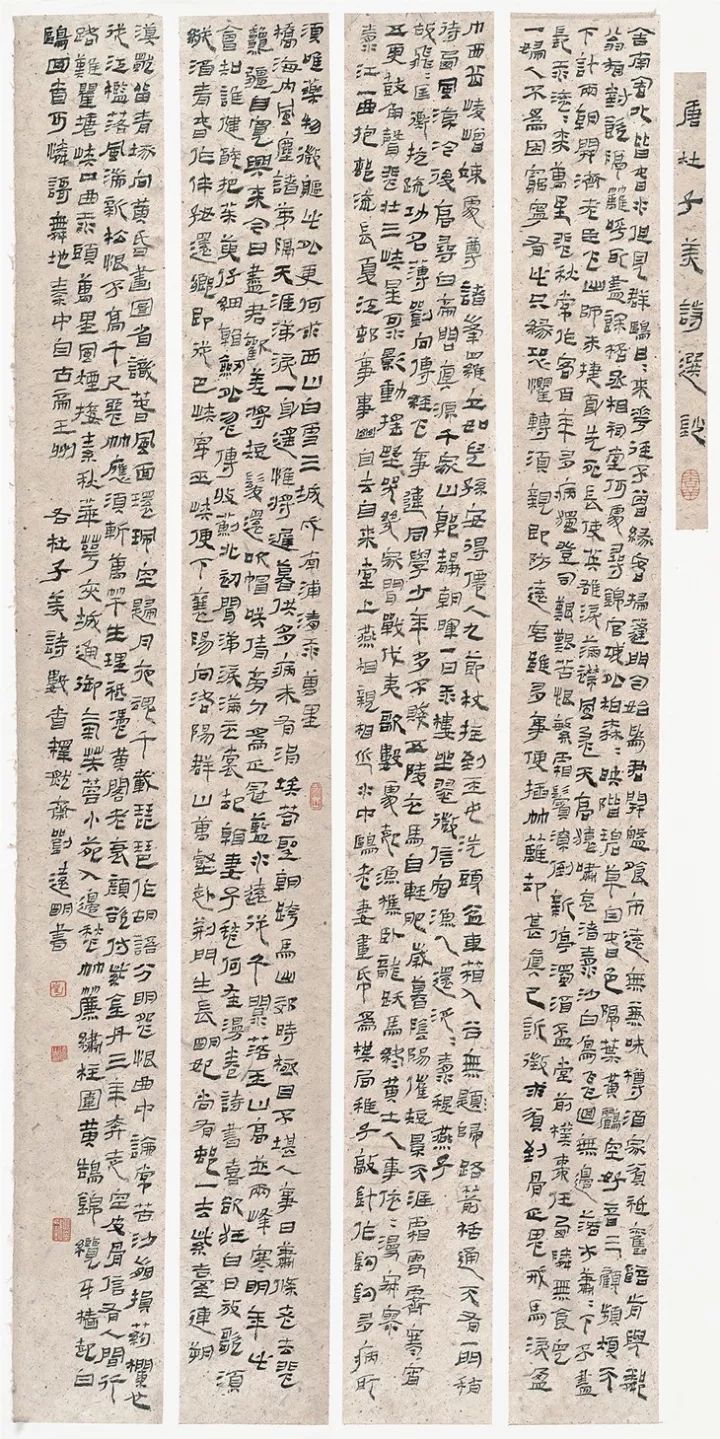 唐杜子美詩選鈔
舍南舍北皆春水但見群鷗日日來花徑不曾緣客掃蓬門今始為君開盤飧市遠無兼味樽酒家貧祇舊醅肯與鄰
翁相對飲隔籬呼取盡餘杯丞相祠堂何處尋錦官城外柏森森映階碧草自春色隔葉黃鸝空好音三顧頻煩天
下計兩朝開濟老臣心出師未捷身先死長使英雄淚滿襟風急天高猿嘯哀渚清沙白鳥飛迴無邊落木蕭蕭下不盡
長江滾滾來萬里悲秋常作客百年多病獨登臺艱難苦恨繁霜鬢潦倒新停濁酒杯堂前撲棗任西鄰無食無兒
一婦人不為困窮寧有此只緣恐懼轉須親即防遠客雖多事便插疏籬卻甚真已訴徵求貧到骨正思戎馬淚盈
巾西岳崚嶒竦處尊諸峰羅立如兒孫安得僊人九節杖拄到玉女洗頭盆車箱入谷無歸路箭栝通天有一門稍
待西風涼冷後高尋白帝問真源千家山郭靜朝暉一日江樓坐翠微信宿漁人還泛泛清秋燕子
故飛飛匡衡抗疏功名薄劉向傳經心事違同學少年多不賤五陵衣馬自輕肥歲暮陰陽催短景天涯霜雪霽寒宵
五更鼓角聲悲壯三峽星河影動搖野哭幾家聞戰伐夷歌數處起漁樵臥龍躍馬終黃土人事依依漫寂寥
清江一曲抱村流長夏江村事事幽自去自來堂上燕相親相近水中鷗老妻畫紙為棋局稚子敲針作釣鉤多病所
須唯藥物微軀此外更何求西山白雪三城戍南浦清江萬里
橋海內風塵諸弟隔天涯涕淚一身遙惟將遲暮供多病未有涓埃答聖朝跨馬出郊時極目不堪人事日蕭條老去悲
秋彊自寬興來今日盡君歡羞將短髮還吹帽笑倩旁人為正冠藍水遠從千澗落玉山高並兩峰寒明年此
會知誰健醉把茱萸仔細看劍外忽傳收薊北初聞涕淚滿衣裳卻看妻子愁何在漫卷詩書喜欲狂白日放歌須
縱酒青春作伴好還鄉即從巴峽穿巫峽便下襄陽向洛陽群山萬壑赴荊門生長明妃尚有村一去紫臺連朔
漠獨留青塚向黃昏畫圖省識春風面環珮空歸月夜魂千載琵琶作胡語分明怨恨曲中論常苦沙崩損藥欄也
從江檻落風湍新松恨不高千尺惡竹應須斬萬竿生理祇憑黃閣老衰顏欲付紫金丹三年奔走空皮骨信有人間行
路難瞿塘峽口曲江頭萬里風煙接素秋華萼夾城通御氣芙蓉小苑入邊愁珠簾繡柱圍黃鵠錦纜牙檣起白
鷗回首可憐歌舞地秦中自古帝王州 右杜子美詩數首釋默齋劉遠明書